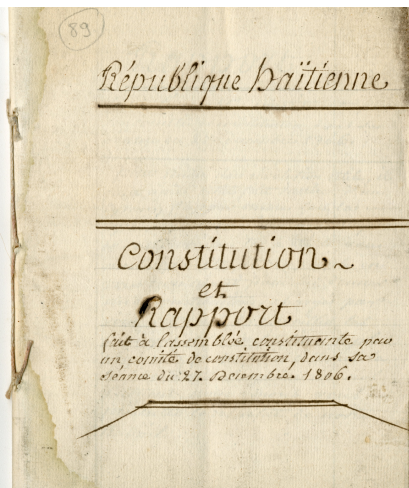 89
République haïtienne
Constitution
et
Rapport
fait à l'assemblée constituante par
un comité de constitution, dans sa
séance du 27. Décembre. 1806.